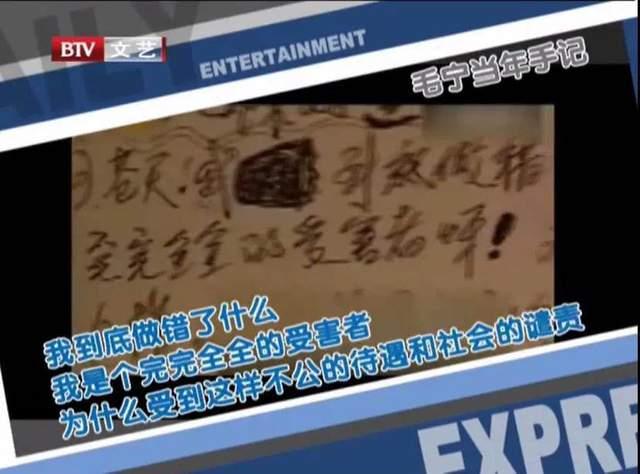 AILY
BTV 文艺
ENTERTAINMENT
毛宁当年手记
苍天!我 到底做错
完完全全的受害者呀!
我到底做错了什么
我是个完完全全的受害者
为什么受到这样不公的待遇和社会的谴责
EXPRE